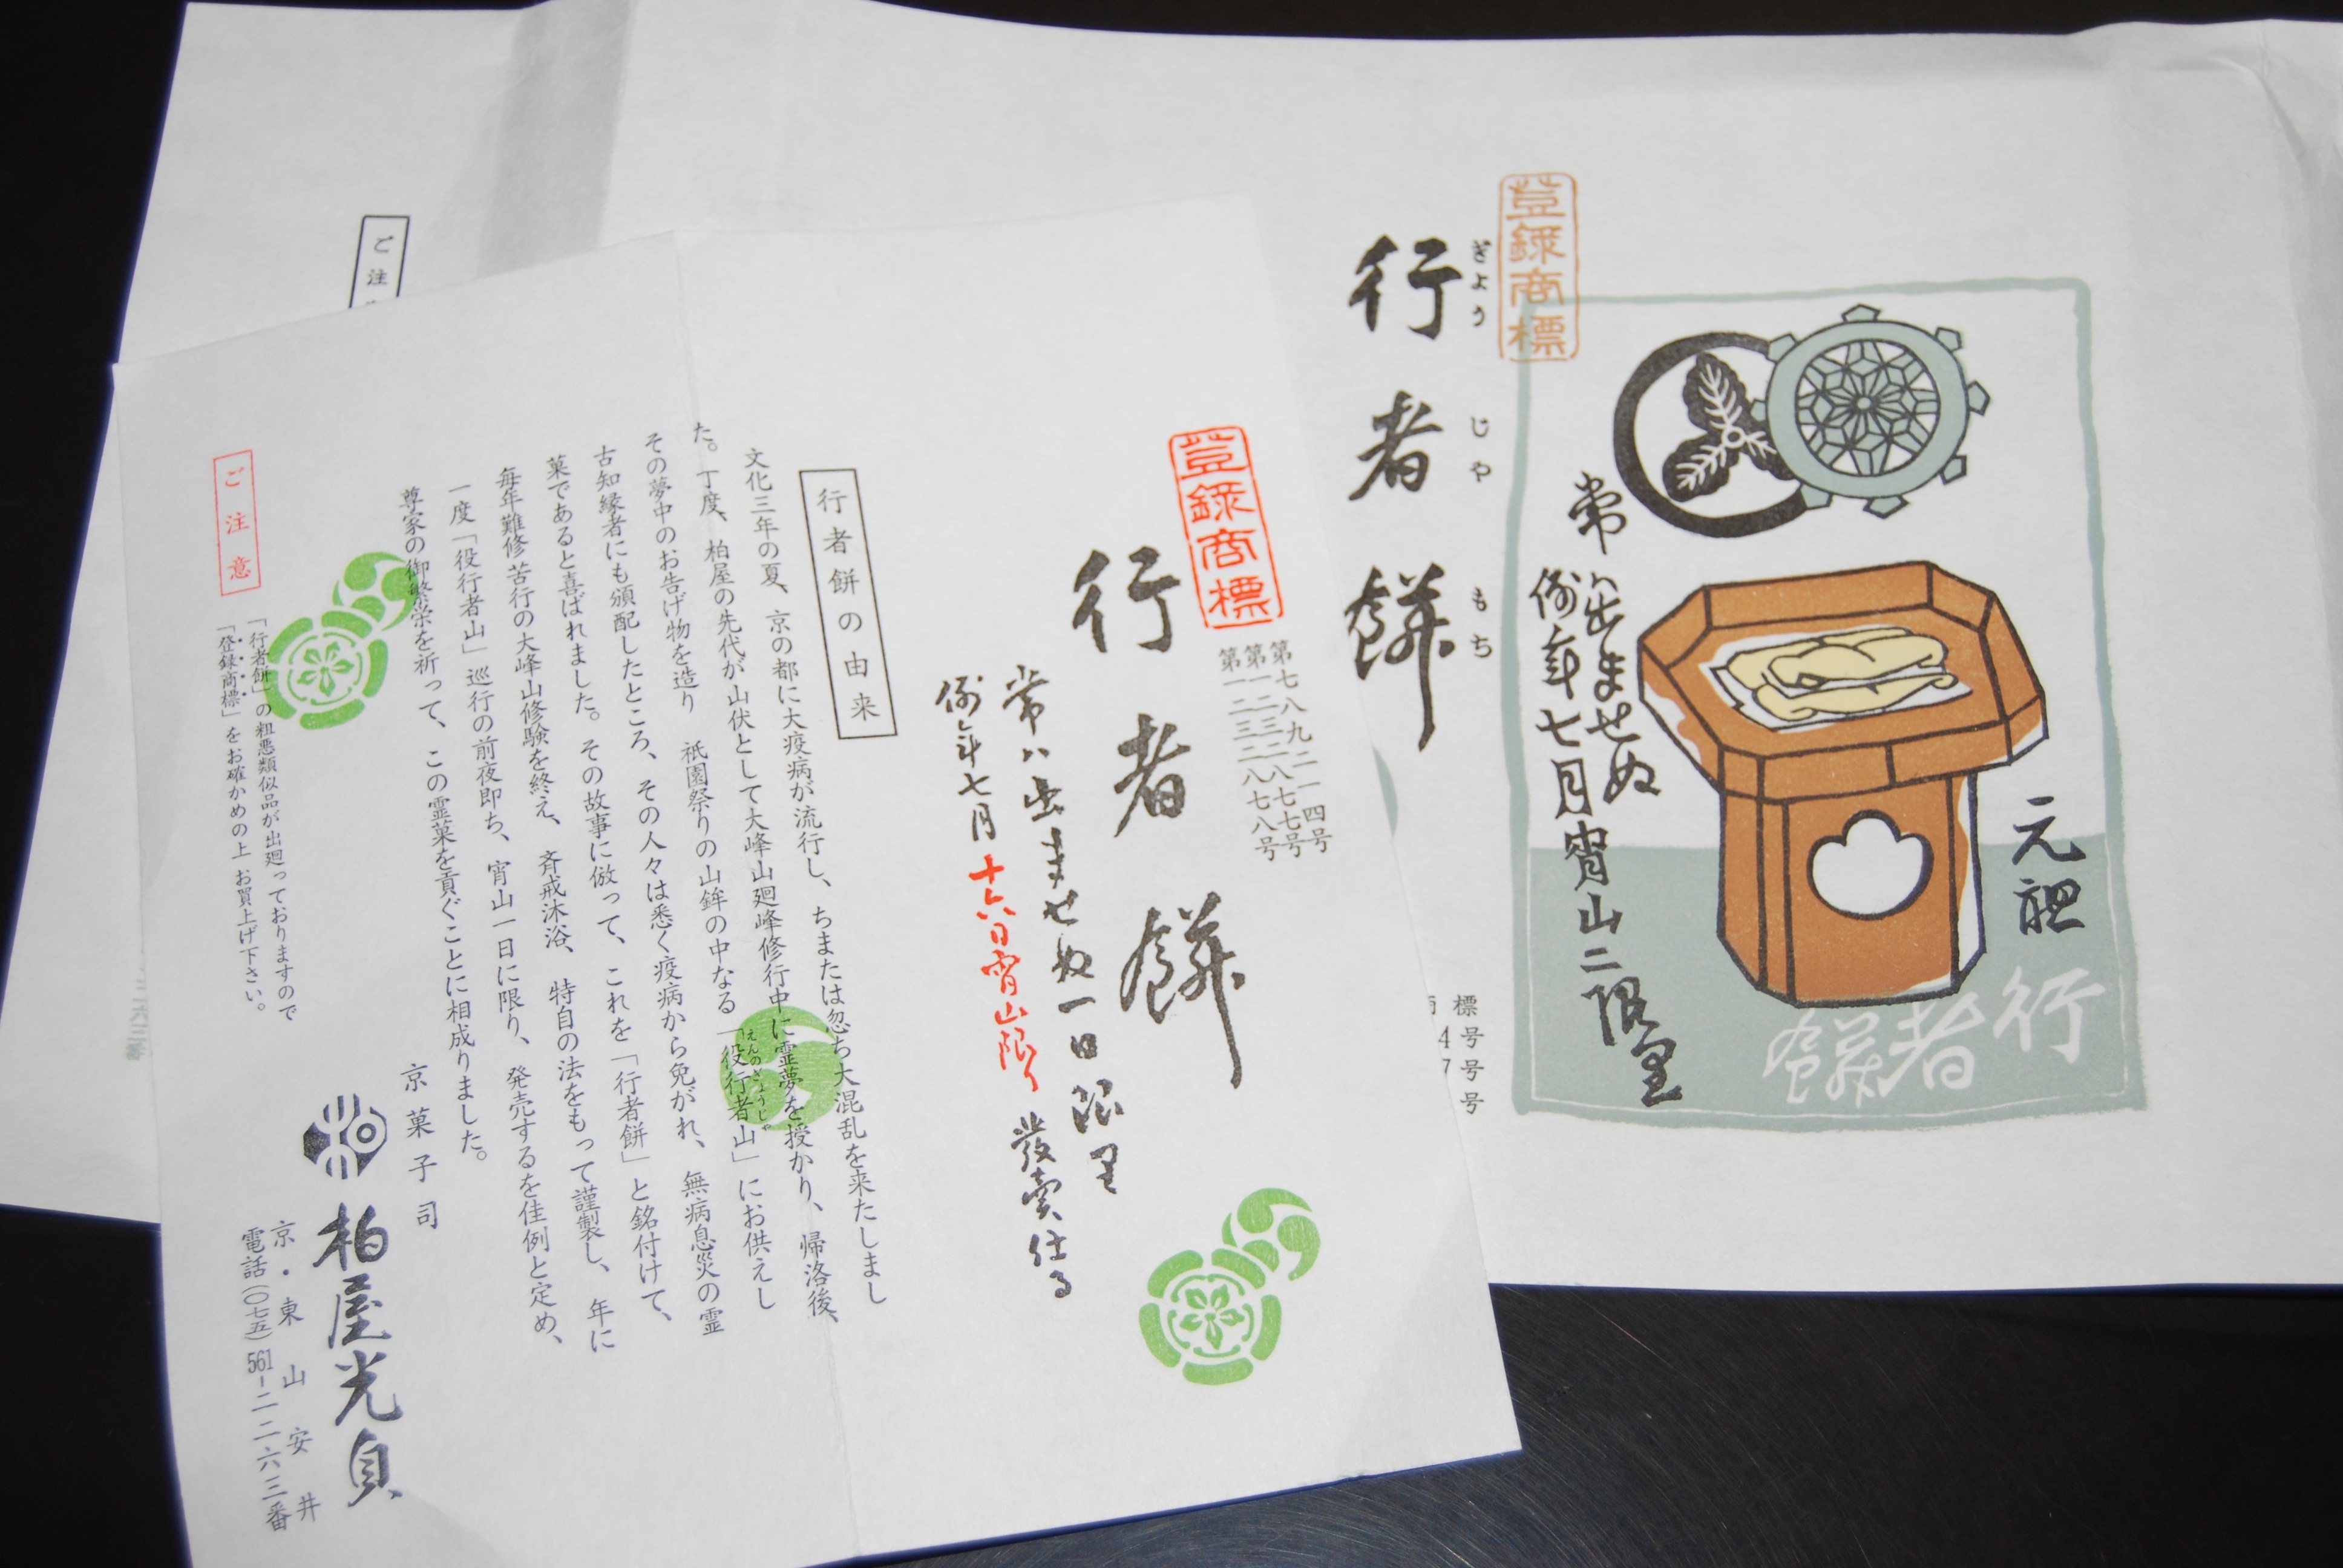 登録商標
行者餅
ぎょうじゃもち
元祖
行者餅
常ハ出ませぬ
例年七月宵山ニ限里
標
号
4号
7号
号
ご注
登録商標
第七八九二一四号
第一三二八七七号
第一二三二八七八号
行者餅
常ハ出ませぬ一日限里
例年七月十六日宵山限り
發賣仕る
行者餅の由来
文化三年の夏、京の都に大疫病が流行し、ちまたは忽ち大混乱を来たしまし
た。丁度、柏屋の先代が山伏として大峰山廻峰修行中に霊夢を授かり、帰洛後、
その夢中のお告げ物を造り 祇園祭りの山鉾の中なる「役行者山」にお供えし
えんのぎょうじゃ
古知縁者にも頒配したところ、その人々は悉く疫病から免がれ、無病息災の霊
菓であると喜ばれました。その故事に倣って、これを「行者餅」と銘付けて、
毎年難修苦行の大峰山修験を終え、斉戒沐浴、特自の法をもって謹製し、年に
一度「役行者山」巡行の前夜即ち、宵山一日に限り、発売するを佳例と定め、
尊家の御繁栄を祈って、この霊菓を貢ぐことに相成りました。
ご注意
「行者餅」の粗悪類似品が出廻っておりますので
「登録商標」をお確かめの上 お買上げ下さい。
京菓子司
柏
柏屋光貞
京・東山安井
電話(〇七五)561-二二六三番